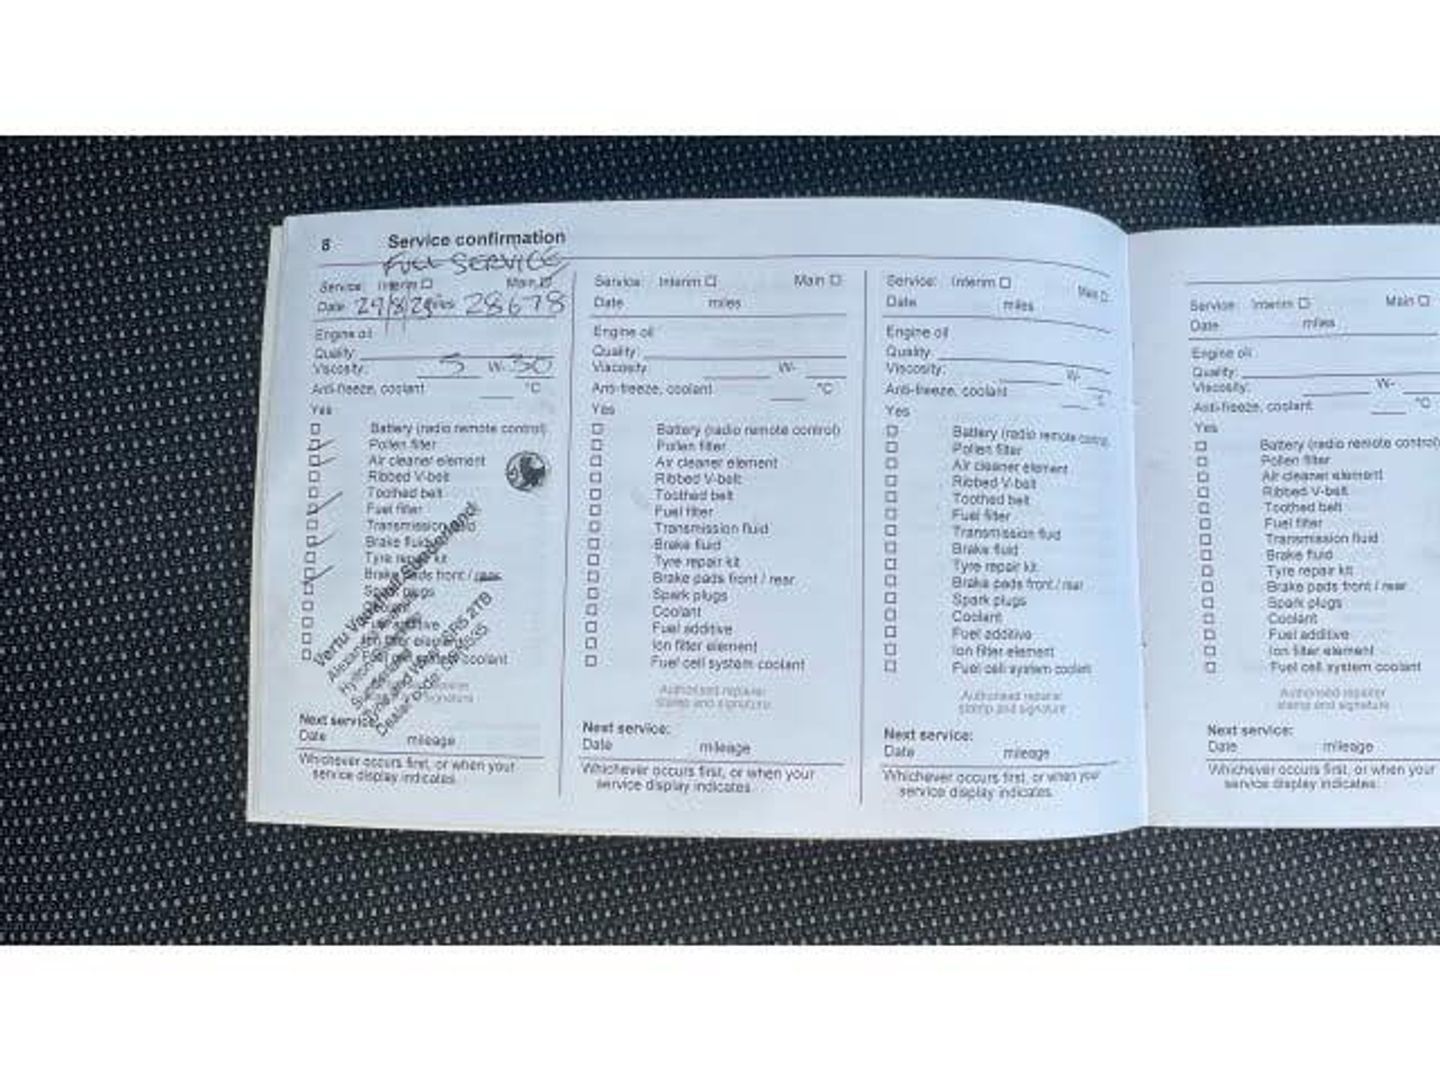 8 Service confirmation
FULL SERVICE
Service: Interim Main
Date 29/8/2 miles 28678
Engine oil
Quality
Viscosity: 5 W-30
Anti-freeze, coolant °C
Yes
Battery (radio remote control)
Pollen filter
Air cleaner element
Ribbed V-belt
Toothed belt
Fuel filter
Transmission fluid
Brake fluid
Tyre repair kit
Brake pads front / rear
Spark plugs
coolant
Vertu Vauxhall Sunderland
SR5 2TB
Next service:
Date mileage
Whichever occurs first, or when your
service display indicates.
Service: Interim Main
Date miles
Engine oil
Quality
Viscosity: W-
Anti-freeze, coolant °C
Yes
Battery (radio remote control)
Pollen filter
Air cleaner element
Ribbed V-belt
Toothed belt
Fuel filter
Transmission fluid
Brake fluid
Tyre repair kit
Brake pads front / rear
Spark plugs
Coolant
Fuel additive
Ion filter element
Fuel cell system coolant
Authorised repairer
stamp and signature
Next service:
Date mileage
Whichever occurs first, or when your
service display indicates.
Service: Interim Main
Date miles
Engine oil
Quality
Viscosity: W-
Anti-freeze, coolant °C
Yes
Battery (radio remote control)
Pollen filter
Air cleaner element
Ribbed V-belt
Toothed belt
Fuel filter
Transmission fluid
Brake fluid
Tyre repair kit
Brake pads front / rear
Spark plugs
Coolant
Fuel additive
Ion filter element
Fuel cell system coolant
Authorised repairer
stamp and signature
Next service:
Date mileage
Whichever occurs first, or when your
service display indicates.
Service: Interim Main
Date miles
Engine oil
Quality
Viscosity: W-
Anti-freeze, coolant °C
Yes
Battery (radio remote control)
Pollen filter
Air cleaner element
Ribbed V-belt
Toothed belt
Fuel filter
Transmission fluid
Brake fluid
Tyre repair kit
Brake pads front / rear
Spark plugs
Coolant
Fuel additive
Ion filter element
Fuel cell system coolant
Authorised repairer
stamp and signature
Next service:
Date mileage
Whichever occurs first, or when your
service display indicates.